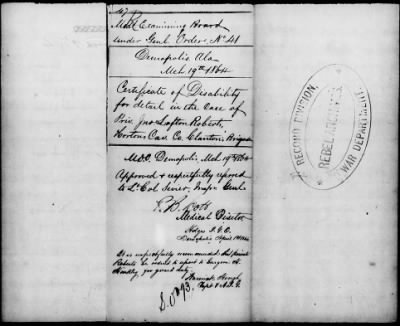 Med. Examining Board
under Genl. Orders No 41
Demopolis Ala
Mch 19th 1864
Certificate of Disability
for detail in the case of
Priv. Jno Lafton Roberts,
Hortons Cav. Co. Clanton's Brigade
M.D.O. Demopolis, Mch 19th 1864
Approved & respectfully referred
to Lt Col Sevier, Insp. Genl
P.B. Scott
Medical Director
Hdqrs
Demopolis April
It is respectfully recommended that private
Roberts be ordered to report to Surgeon
for guard duty.
Capt & A.I.G.
RECORD DIVISION.
REBEL ARCHIVES.
WAR DEPARTMENT.